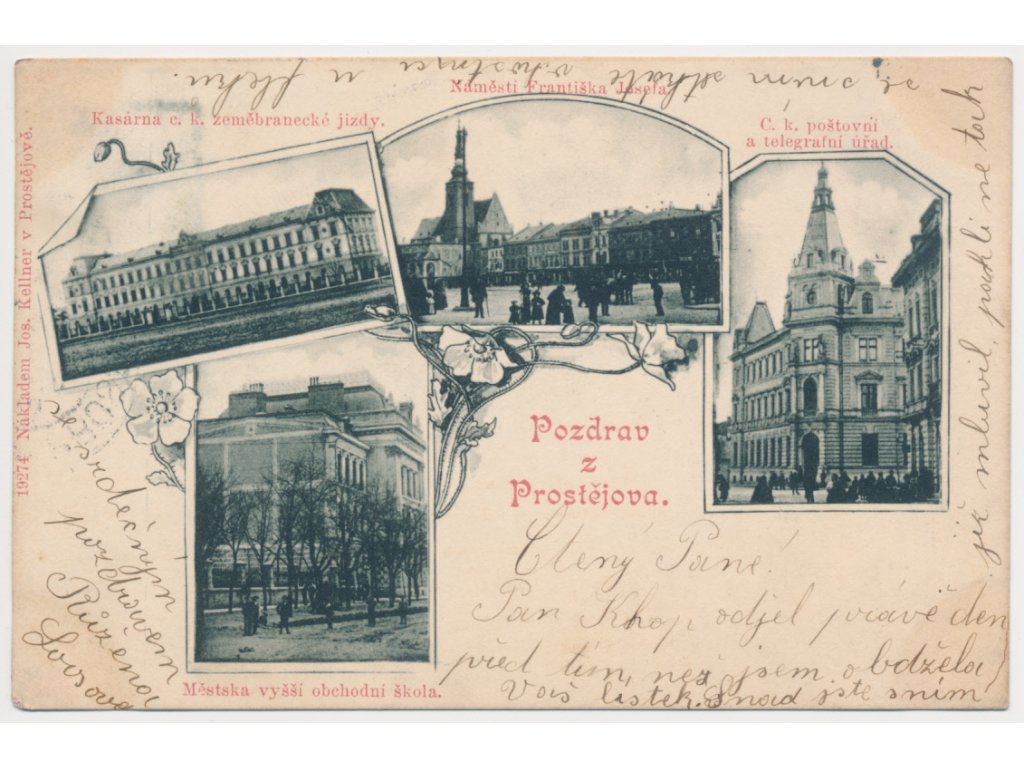 Kasárna c. k. zeměbranecké jizdy.
Náměstí Františka Josefa.
C. k. poštovni
a telegrafní úřad.
19274 Nákladem Jos. Kellner v Prostějově.
Pozdrav
z
Prostějova.
Městska vyšší obchodní škola.
Ctěný Pane!
Pan Khop odjel právě den
před tím, než jsem obdžela
Vaš lístek. Snad jste s ním
již mluvil, pakli ne tak
se srdečným
pozdravem
Růžena